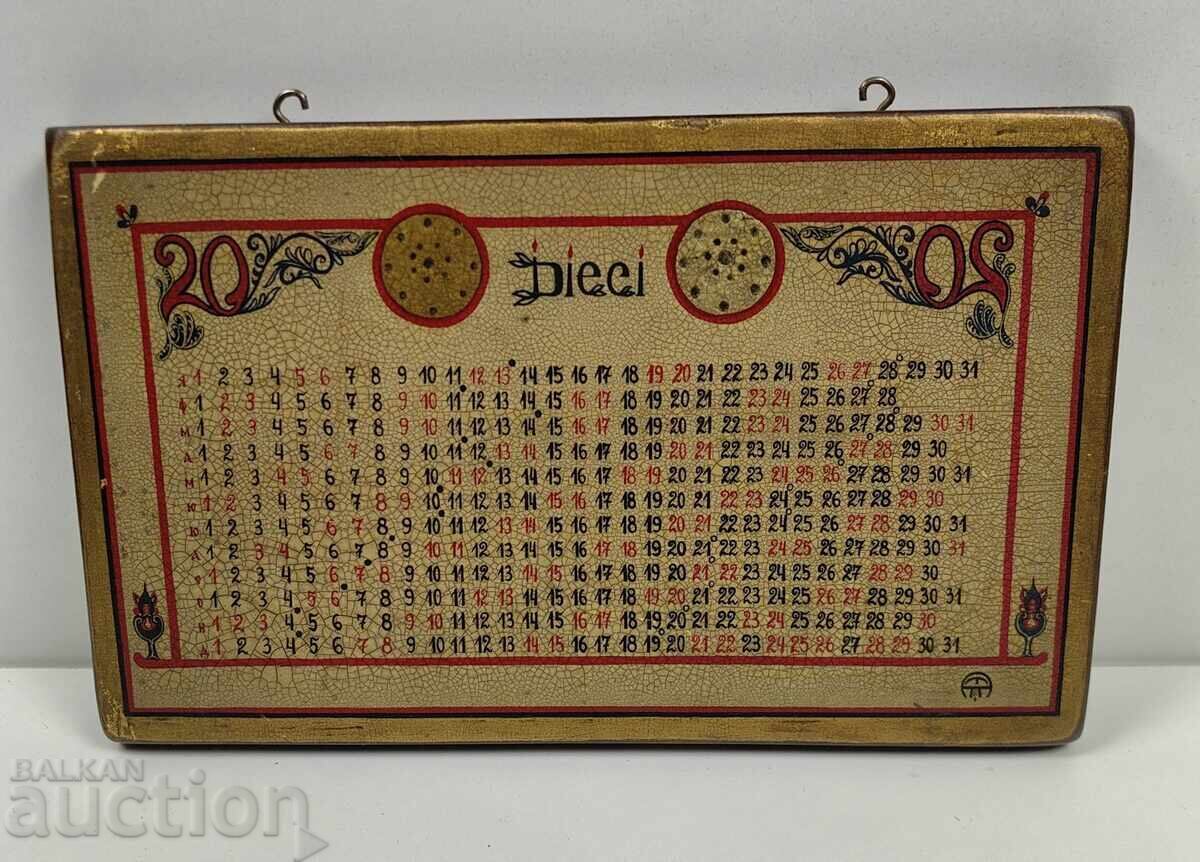 20 Dieci 02
я 1 2 3 4 5 6 7 8 9 10 11 12 13 14 15 16 17 18 19 20 21 22 23 24 25 26 27 28 29 30 31
ф 1 2 3 4 5 6 7 8 9 10 11 12 13 14 15 16 17 18 19 20 21 22 23 24 25 26 27 28
м 1 2 3 4 5 6 7 8 9 10 11 12 13 14 15 16 17 18 19 20 21 22 23 24 25 26 27 28 29 30 31
а 1 2 3 4 5 6 7 8 9 10 11 12 13 14 15 16 17 18 19 20 21 22 23 24 25 26 27 28 29 30
м 1 2 3 4 5 6 7 8 9 10 11 12 13 14 15 16 17 18 19 20 21 22 23 24 25 26 27 28 29 30 31
ю 1 2 3 4 5 6 7 8 9 10 11 12 13 14 15 16 17 18 19 20 21 22 23 24 25 26 27 28 29 30
ю 1 2 3 4 5 6 7 8 9 10 11 12 13 14 15 16 17 18 19 20 21 22 23 24 25 26 27 28 29 30 31
а 1 2 3 4 5 6 7 8 9 10 11 12 13 14 15 16 17 18 19 20 21 22 23 24 25 26 27 28 29 30 31
с 1 2 3 4 5 6 7 8 9 10 11 12 13 14 15 16 17 18 19 20 21 22 23 24 25 26 27 28 29 30
о 1 2 3 4 5 6 7 8 9 10 11 12 13 14 15 16 17 18 19 20 21 22 23 24 25 26 27 28 29 30 31
н 1 2 3 4 5 6 7 8 9 10 11 12 13 14 15 16 17 18 19 20 21 22 23 24 25 26 27 28 29 30
д 1 2 3 4 5 6 7 8 9 10 11 12 13 14 15 16 17 18 19 20 21 22 23 24 25 26 27 28 29 30 31
BALKAN
auction